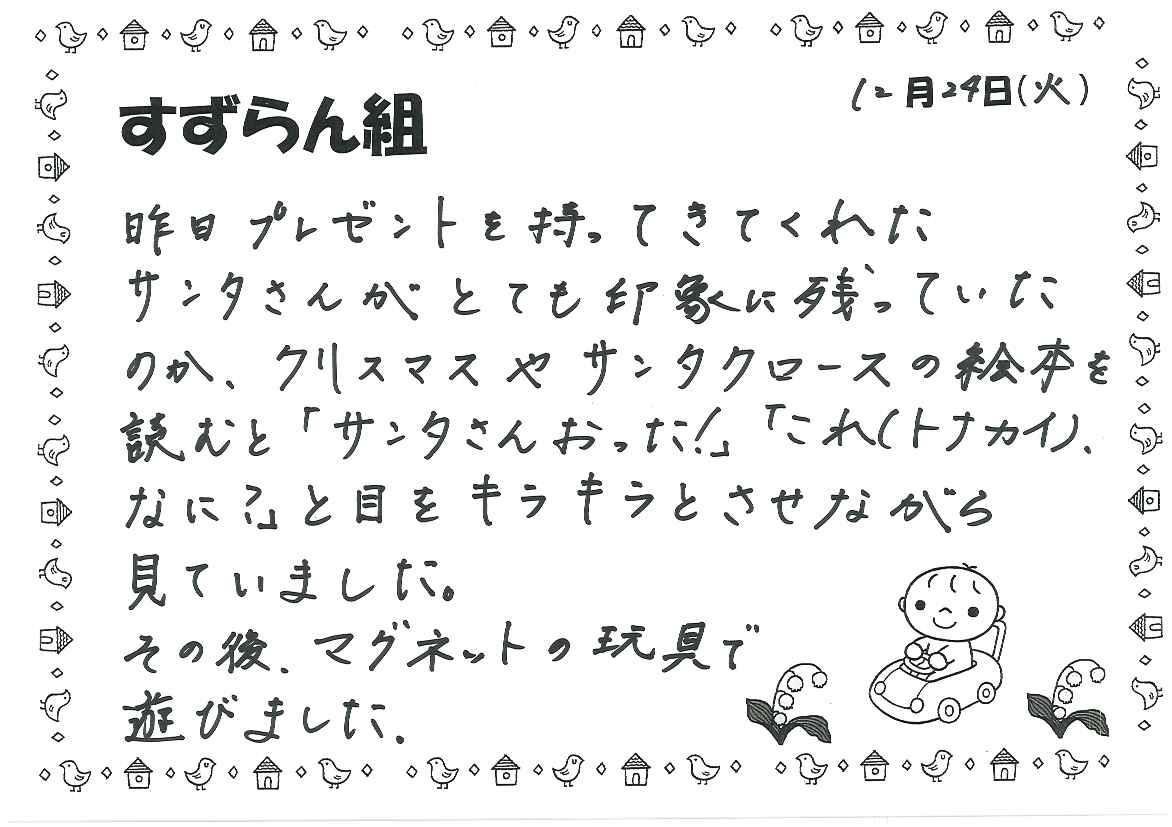 すずらん組
12月24日(火)
昨日プレゼントを持ってきてくれた
サンタさんがとても印象に残っていた
のか、クリスマスやサンタクロースの絵本を
読むと「サンタさんおった!」「これ(トナカイ)、
なに?」と目をキラキラとさせながら
見ていました。
その後、マグネットの玩具で
遊びました。